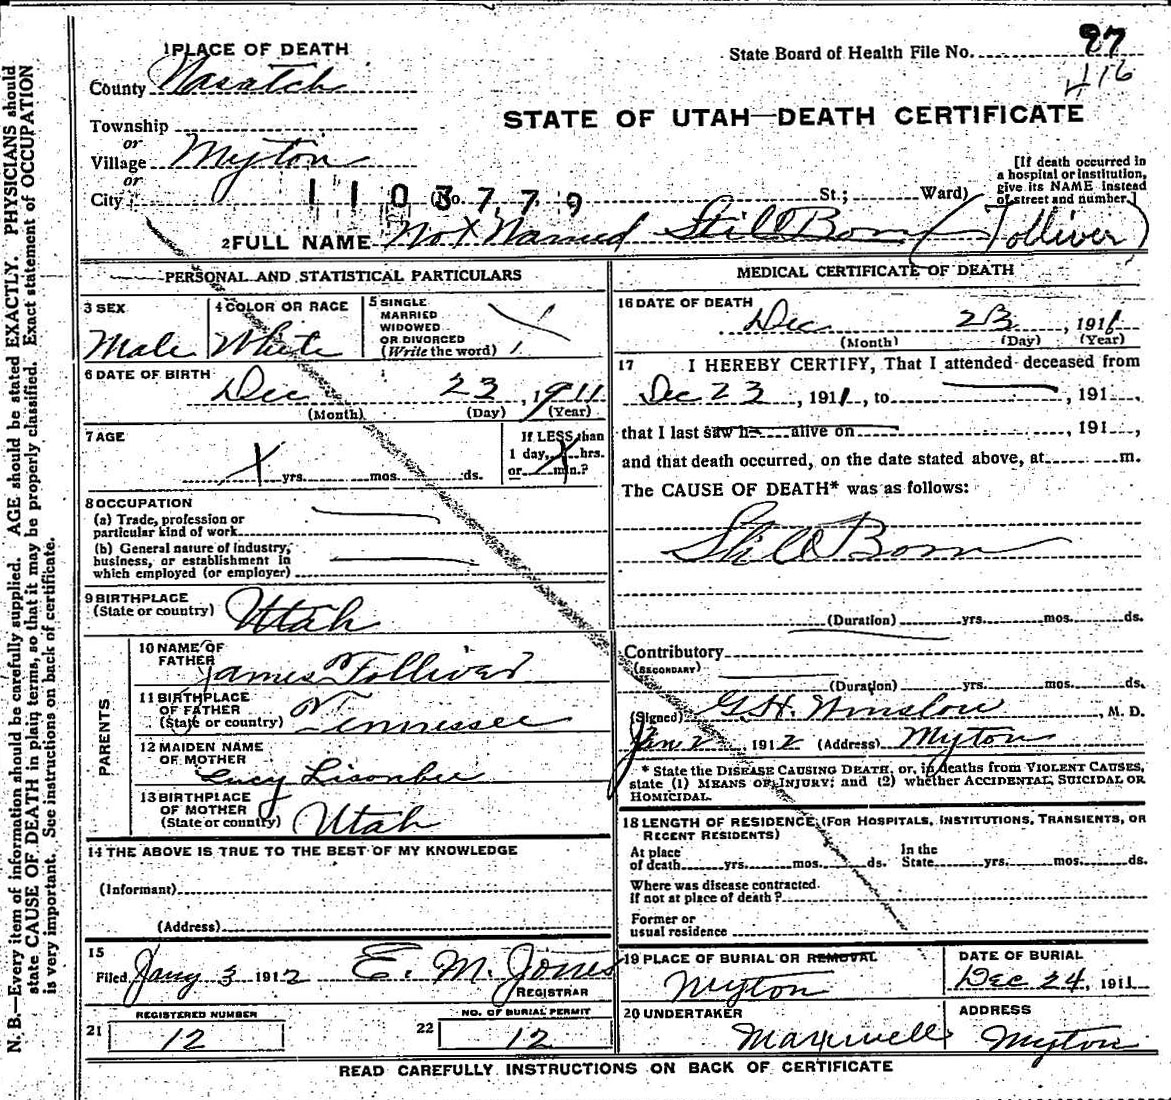 N. B.—Every item of information should be carefully supplied. AGE should be stated EXACTLY. PHYSICIANS should
state CAUSE OF DEATH in plain terms, so that it may be properly classified. Exact statement of OCCUPATION
is very important. See instructions on back of certificate.
1 PLACE OF DEATH
State Board of Health File No. 97
416
County Wasatch
STATE OF UTAH—DEATH CERTIFICATE
Township
or
Village Myton
or
City (No. St.; Ward)
1103779
[If death occurred in
a hospital or institution,
give its NAME instead
of street and number.]
2 FULL NAME Not Named Still Born (Tolliver)
PERSONAL AND STATISTICAL PARTICULARS
3 SEX Male
4 COLOR OR RACE White
5 SINGLE
MARRIED
WIDOWED
OR DIVORCED
(Write the word)
6 DATE OF BIRTH
Dec 23, 1911
(Month) (Day) (Year)
7 AGE
yrs. mos. ds.
If LESS than
1 day, hrs.
or min.?
8 OCCUPATION
(a) Trade, profession or
particular kind of work
(b) General nature of industry,
business, or establishment in
which employed (or employer)
9 BIRTHPLACE
(State or country) Utah
PARENTS
10 NAME OF
FATHER James Tolliver
11 BIRTHPLACE
OF FATHER
(State or country) Tennessee
12 MAIDEN NAME
OF MOTHER Lucy Lisonbee
13 BIRTHPLACE
OF MOTHER
(State or country) Utah
14 THE ABOVE IS TRUE TO THE BEST OF MY KNOWLEDGE
(Informant)
(Address)
15
Filed Jany 3 1912 E. M. Jones
REGISTRAR
REGISTERED NUMBER
21 12
NO. OF BURIAL PERMIT
22 12
MEDICAL CERTIFICATE OF DEATH
16 DATE OF DEATH
Dec 23, 1911
(Month) (Day) (Year)
17 I HEREBY CERTIFY, That I attended deceased from
Dec 23, 1911, to , 191 ,
that I last saw h alive on , 191 ,
and that death occurred, on the date stated above, at m.
The CAUSE OF DEATH* was as follows:
Still Born
(Duration) yrs. mos. ds.
Contributory
(SECONDARY)
(Duration) yrs. mos. ds.
(Signed) G. H. Winslow, M. D.
Jan 2, 1912 (Address) Myton
* State the DISEASE CAUSING DEATH, or, in deaths from VIOLENT CAUSES,
state (1) MEANS OF INJURY; and (2) whether ACCIDENTAL, SUICIDAL OR
HOMICIDAL.
18 LENGTH OF RESIDENCE (FOR HOSPITALS, INSTITUTIONS, TRANSIENTS, OR
RECENT RESIDENTS)
At place In the
of death yrs. mos. ds. State yrs. mos. ds.
Where was disease contracted
If not at place of death?
Former or
usual residence
19 PLACE OF BURIAL OR REMOVAL
Myton
DATE OF BURIAL
Dec 24, 1911
20 UNDERTAKER
Maxwell
ADDRESS
Myton
READ CAREFULLY INSTRUCTIONS ON BACK OF CERTIFICATE